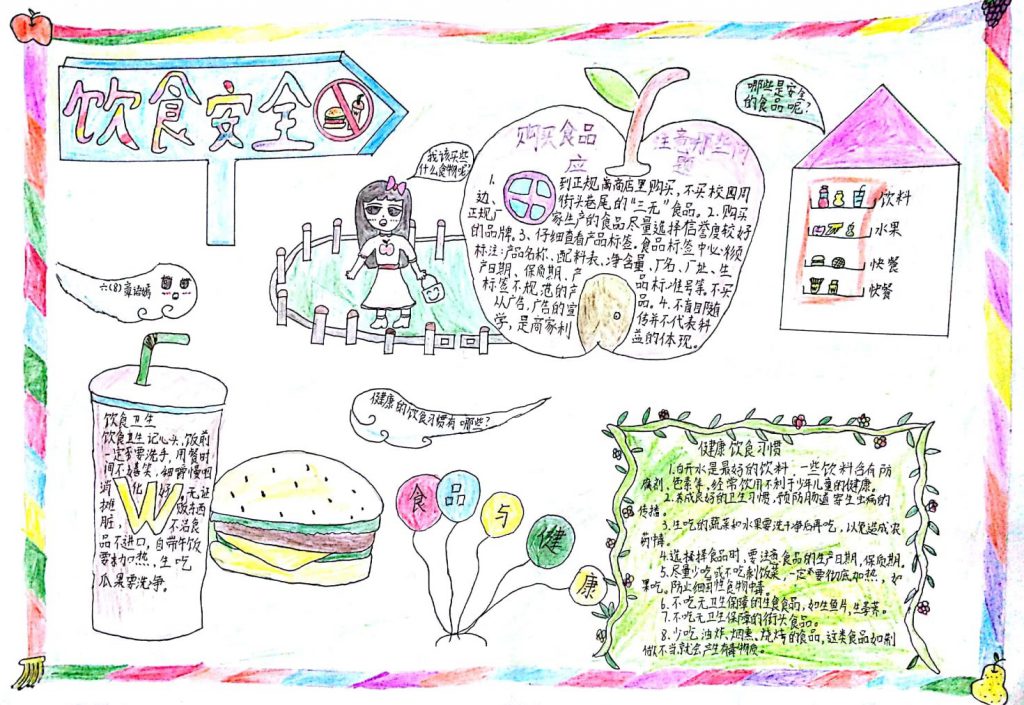 饮食安全
我该买些
什么食物呢?
哪些是安全
的食品呢?
购买食品
应
注意哪些问
题
1、到正规商店里购买,不买校园周
边、街头巷尾的"三无"食品。2、购买
正规厂家生产的食品尽量选择信誉度较好
的品牌。3、仔细查看产品标签。食品标签中必须
标注:产品名称、配料表、净含量、厂名、厂址、生
产日期、保质期、产品标准号等。不买
标签不规范的产品。4、不盲目随
从广告,广告的宣传并不代表科
学,是商家利益的体现。
饮料
水果
快餐
快餐
六(8)
饮食卫生
饮食卫生记心头,饭前
一定要洗手,用餐时
间不嬉笑,细嚼慢咽
消化好,无证
摊饭东西
脏,不洁食
品不进口,自带午饭
要加热,生吃
瓜果要洗净。
W
健康的饮食习惯有哪些?
食品与健康
健康饮食习惯
1.白开水是最好的饮料,一些饮料含有防
腐剂、色素等,经常饮用不利于少年儿童的健康。
2.养成良好的卫生习惯,预防肠道寄生虫病的
传播。
3.生吃的蔬菜和水果要洗干净后再吃,以免造成农
药中毒。
4.选择择食品时,要注意食品的生产日期,保质期。
5.尽量少吃或不吃剩饭菜,一定要彻底加热,如
果吃。防止细菌性食物中毒。
6.不吃无卫生保障的生食食品,如生鱼片,生荸荠。
7.不吃无卫生保障的街头食品。
8.少吃油炸、烟熏、烧烤的食品,这类食品如制
做不当就会产生有毒物质。